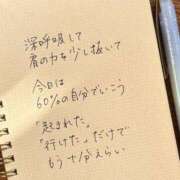 深呼吸して
肩の力を少し抜いて
今日は
60%の自分でいこう
"起きれた。
"行けた。"だけで
もう十分えらい